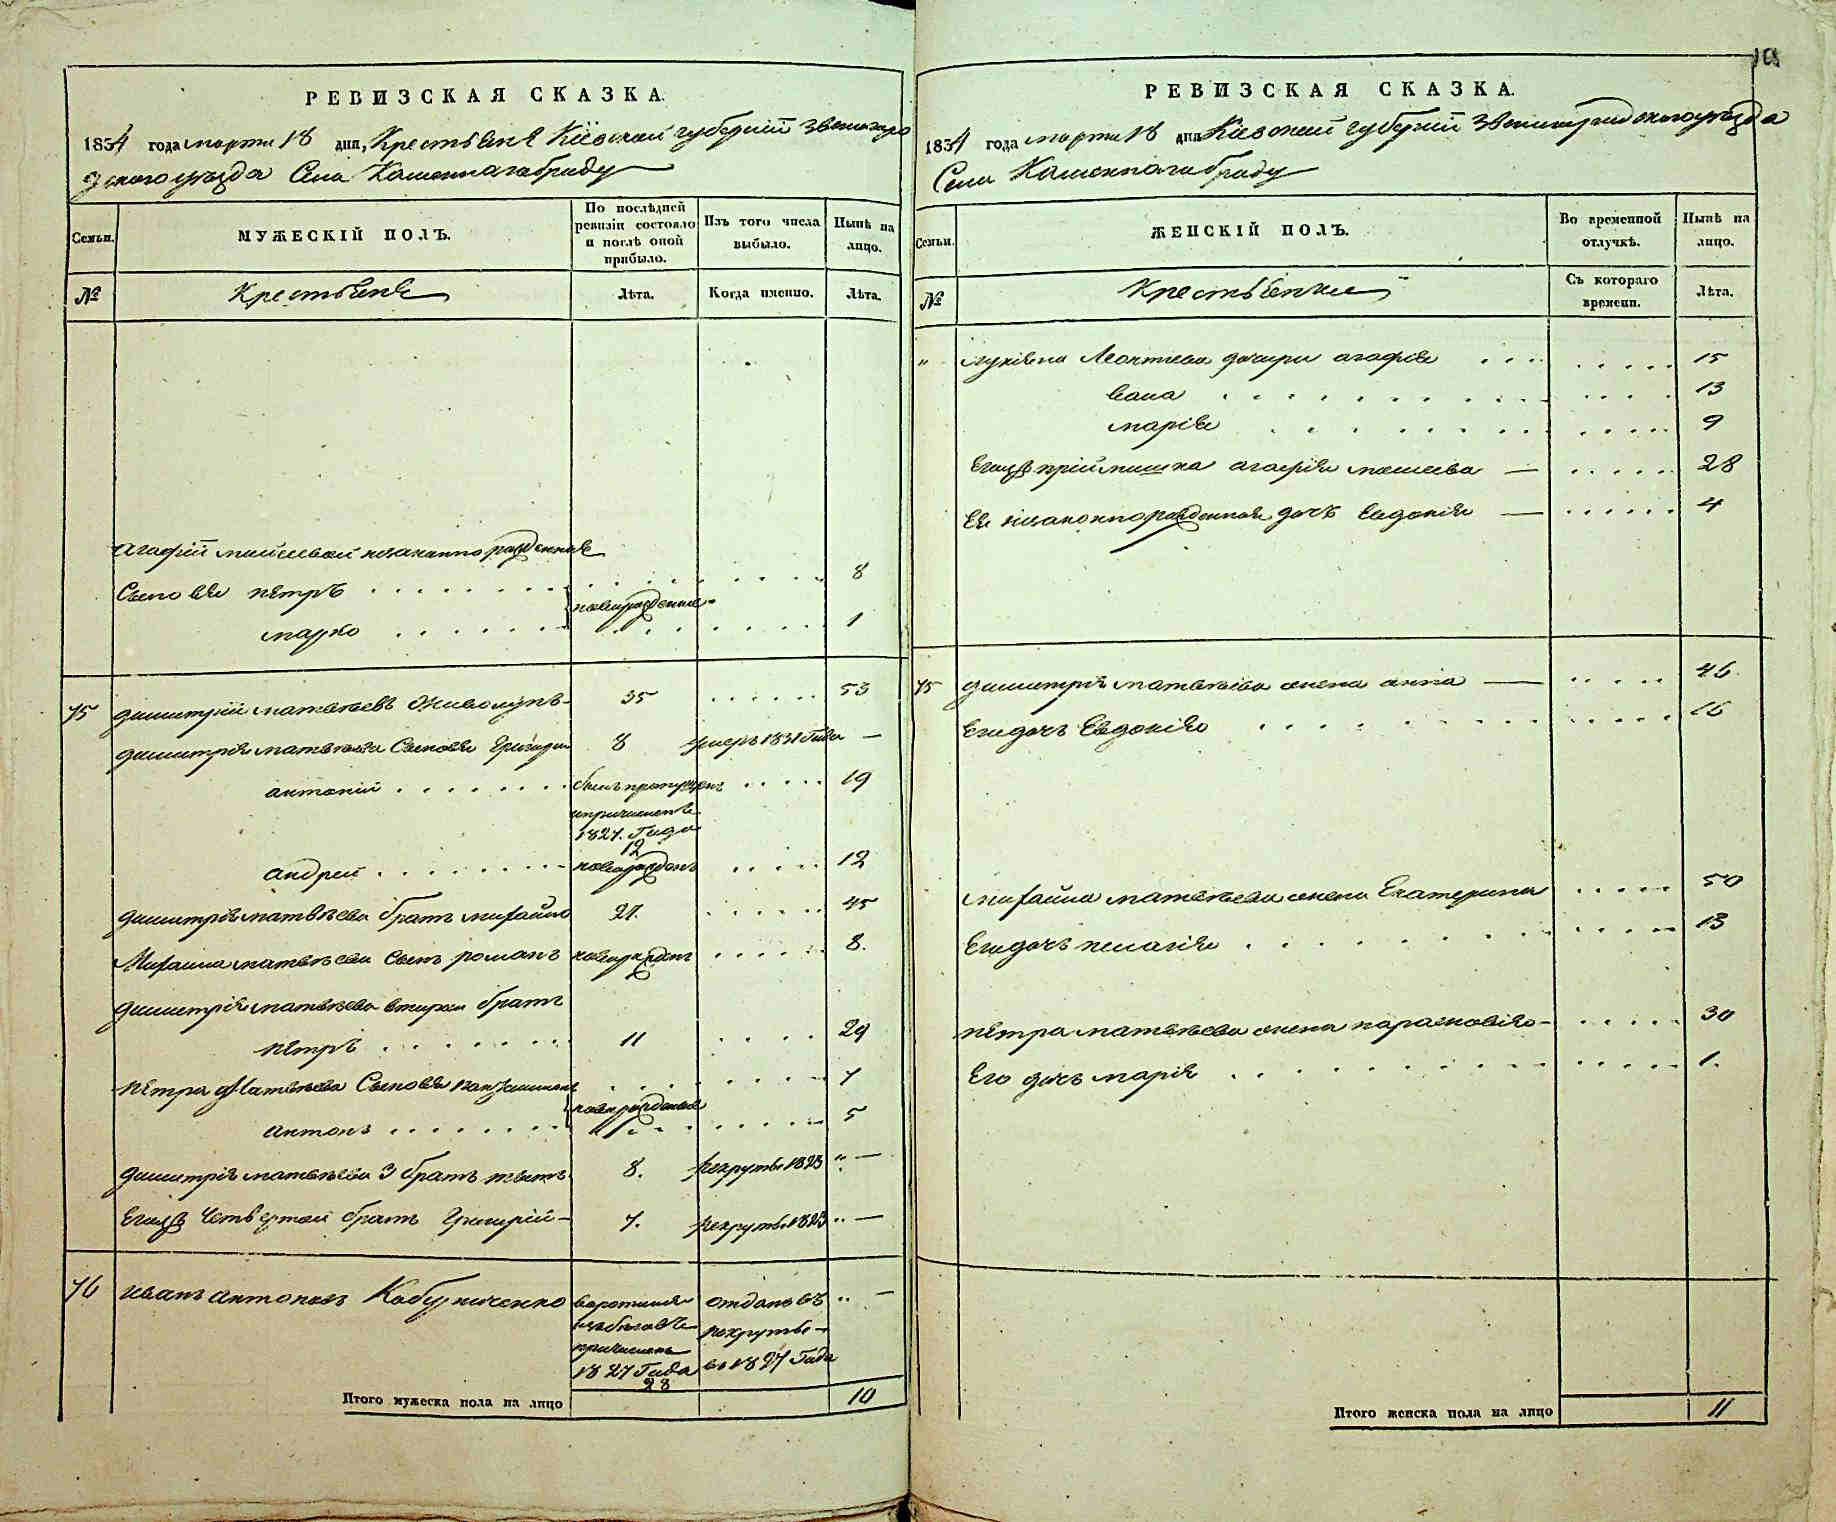 РЕВИЗСКАЯ СКАЗКА.
1834 года марта 18 дня, Крестьяне Кіевской губерніи Звенигоро
дскаго уѣзда Села Каменнагаброду
Семьи.
МУЖЕСКІЙ ПОЛЪ.
По послѣдней
ревизіи состояло
и послѣ оной
прибыло.
Изъ того числа
выбыло.
Нынѣ на
лицо.
№
Крестьяне
Лѣта.
Когда именно.
Лѣта.
Агафіи незаконнорожденные
Сыновья Петръ 8
новорожденные
Марко 1
75 Димитрій Матвѣевъ 35 53
Димитрія Матвѣева Сыновья Григорій 8 умеръ 1831 Года —
Антоній былъ пропущенъ 19
и причисленъ
1827. Года
12
Андрей новорожденъ 12
Димитрія Матвѣева братъ Михайло 27. 45
Михаила Матвѣева Сынъ Романъ новорожденъ 8.
Димитрія Матвѣева вторый братъ
Петръ 11 29
Петра Матвѣева Сыновья 7
новорожденные
Антонъ 5
Димитрія Матвѣева 3 братъ 8. рекруты 1823 " —
Егожъ Четвертой братъ Григорій 7. рекруты 1823 " —
76 Иванъ Антоновъ воротился отданъ въ " —
изъ бѣговъ рекруты
причисленъ
1827 Года въ 1827 Года
28
Итого мужеска пола на лицо 10
РЕВИЗСКАЯ СКАЗКА.
1834 года марта 18 дня Кіевской губерніи Звенигородскаго уѣзда
Села Каменнагаброду
Семьи.
ЖЕНСКІЙ ПОЛЪ.
Во временной
отлучкѣ.
Нынѣ на
лицо.
№
Крестьянки
Съ котораго
времени.
Лѣта.
" Леонтіева дочери Агафія 15
13
Марія 9
Егожъ пріймишка Агафія 28
Ея незаконнорожденная дочь Евдокія 4
75 Димитрія Матвѣева жена Анна 46.
Его дочь Евдокія 16
Михайла Матвѣева жена Екатерина 50
Его дочь Пелагія 13
Петра Матвѣева жена Парасковія 30
Его дочь Марія 1.
Итого женска пола на лицо 11